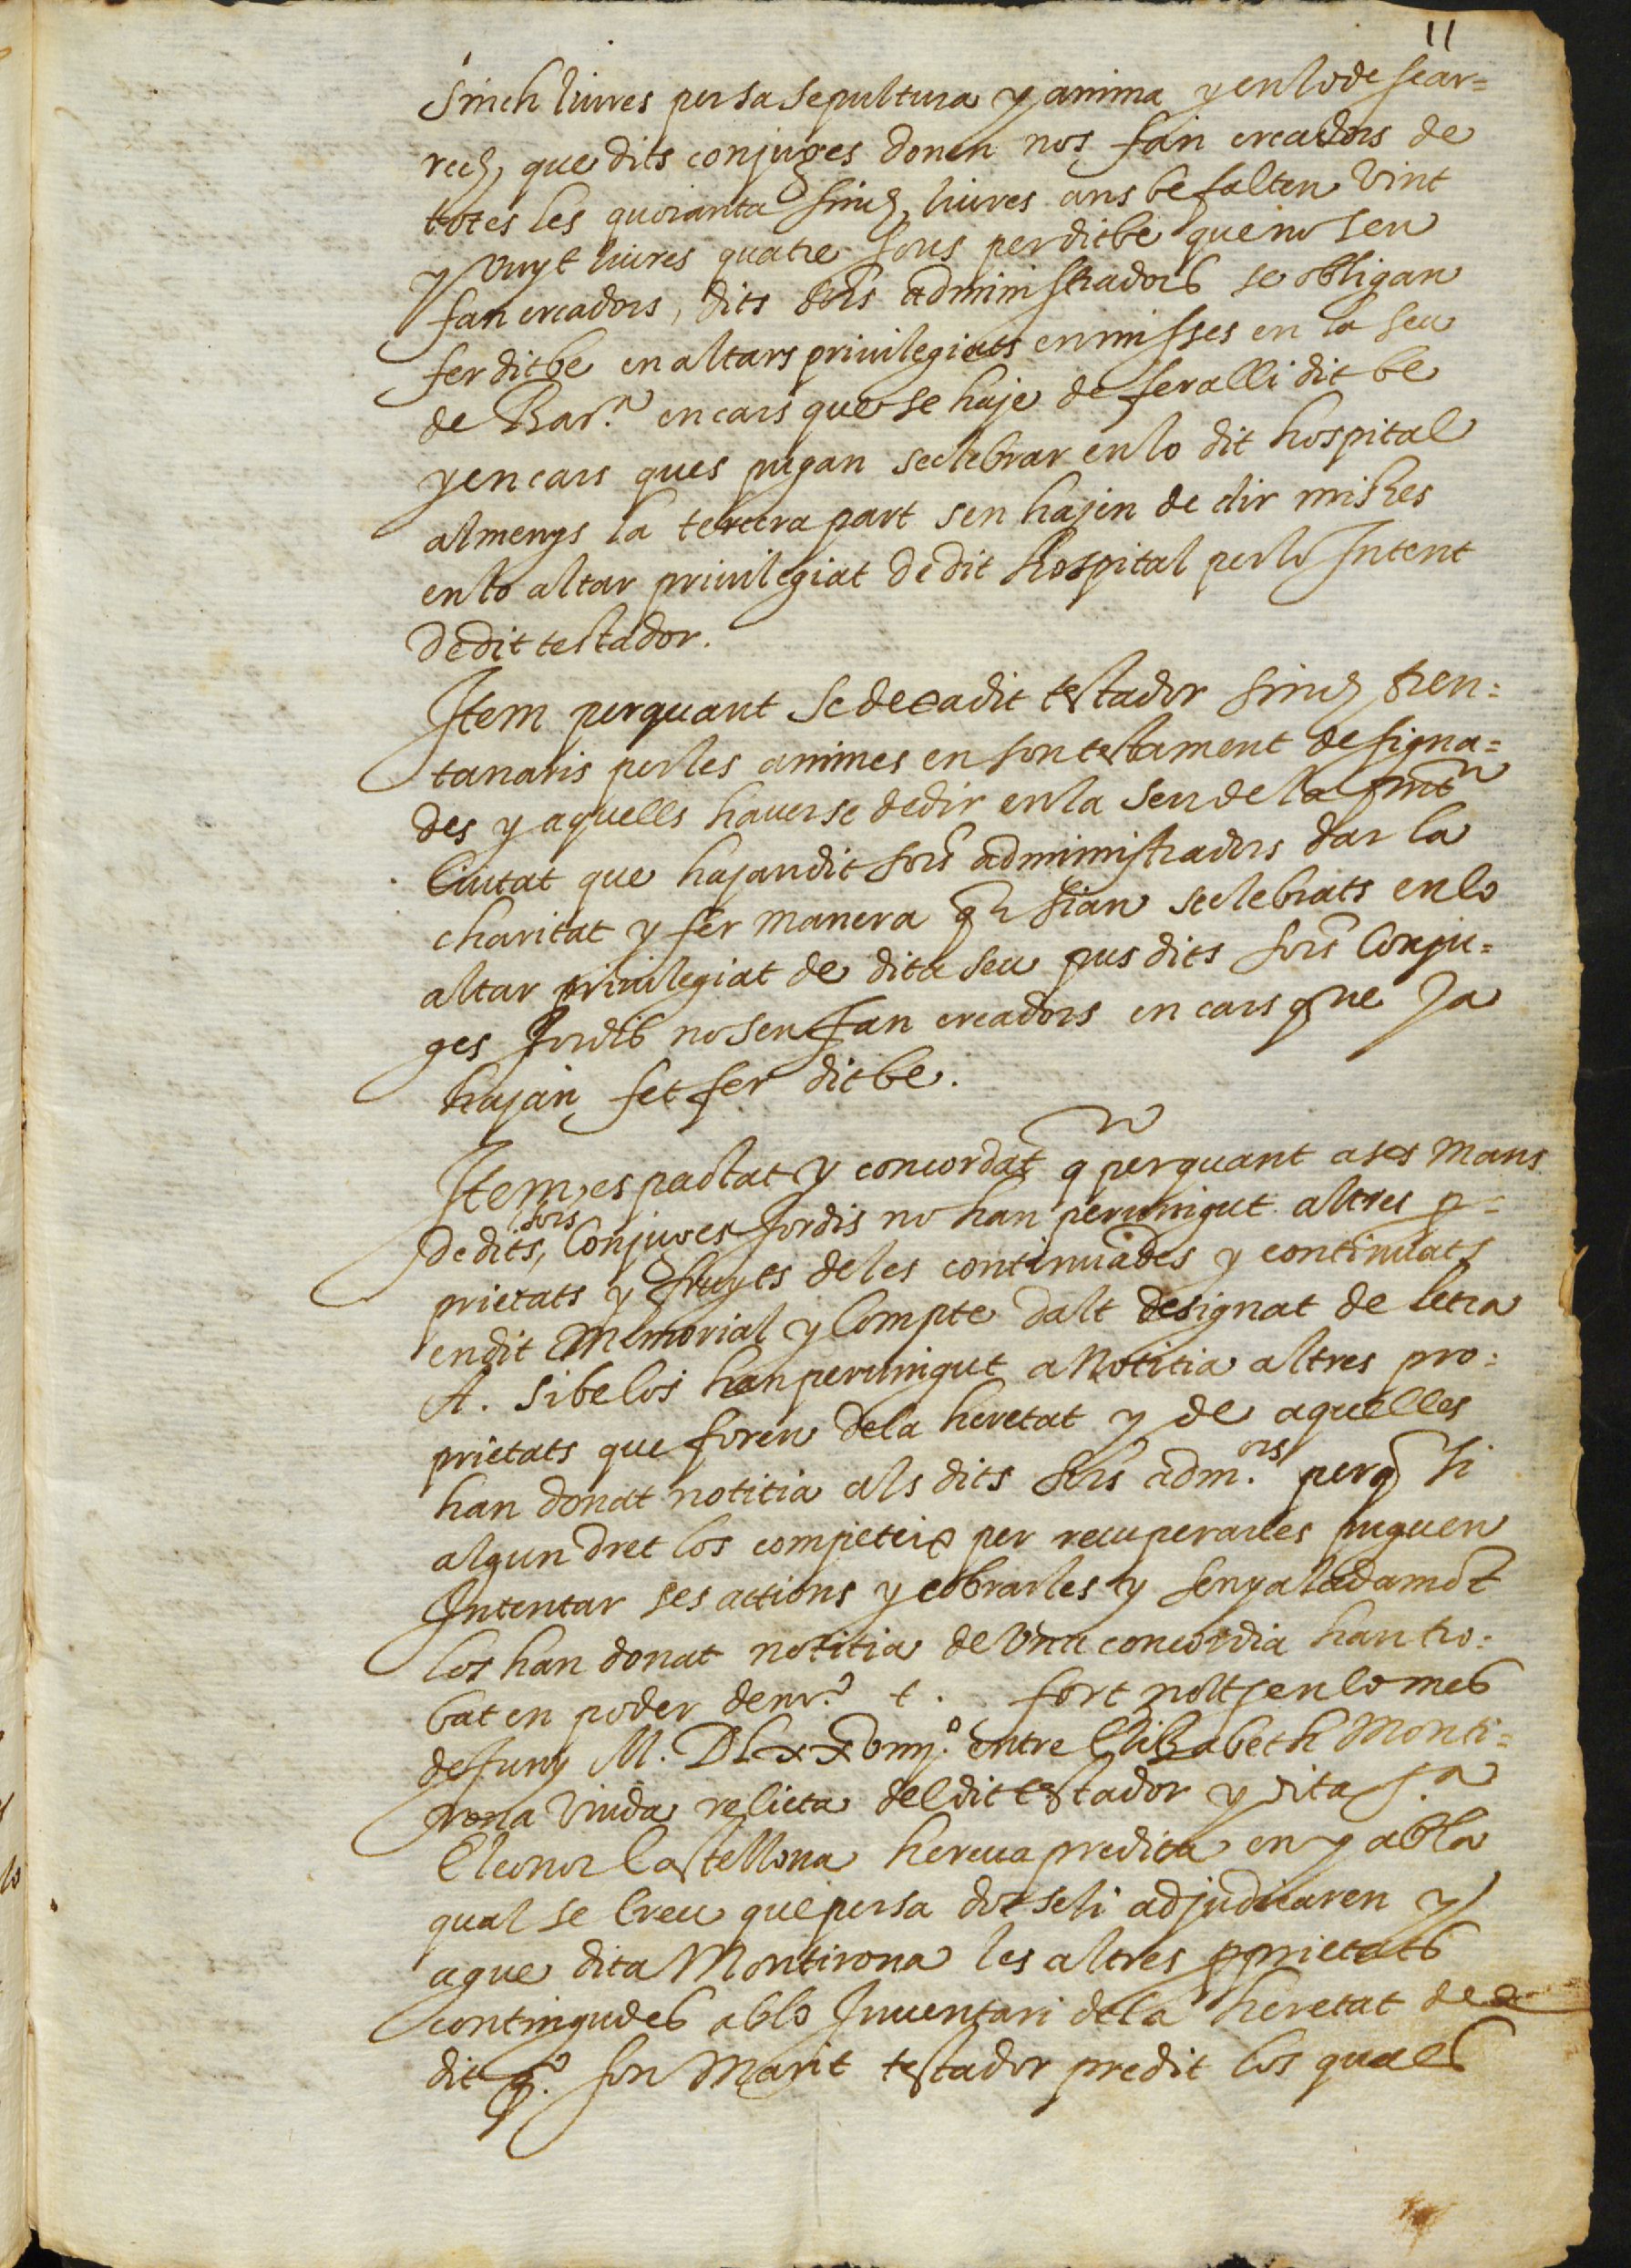 11
Sinch liures per sa sepultura y anima y en lo descar=
rech, que dits conjuges donen nos fan creadors de
totes les quoranta sinch liures ans be falten vint
y vuyt liures quatre sous per dit be que no sen
fan creadors, dits Srs administradors se obligan
fer dit be en altars priuilegiats en misses en la seu
de Barna. en cars que se haje de fer alli dit be
y en cars ques pugan selebrar en lo dit hospital
almenys la tercera part sen hajen de dir misses
en lo altar priuilegiat de dit hospital per lo Intent
de dit testador.
Item perquant se dexa dit testador sinch tren=
tanaris per les animes en son testament designa=
des y aquells hauerse de dir en la seu de la pnt
Ciutat que hajan dit sors administradors dar la
charitat y fer manera q sian selebrats en lo
altar priuilegiat de dita seu pus dits sors Conju=
ges Jordis no sen fan creadors en cars que ja
hajan fet fer dit be.
Item, es pactat y concordat q perquant a ses mans
de dits, sors Conjuges Jordis no han peruingut altres p=
prietats y fruyts de les continuades y continuats
en dit Memorial y Compte dalt designat de letra
A. si be los han peruingut a Notitia altres pro=
prietats que foren de la heretat y de aquelles
han donat notitia als dits Srs adm.ors perq si
algun dret los competeix per recuperarles puguen
Intentar ses actions y cobrarles y senyaladamet
los han donat notitia de vna concordia han tro=
bat en poder de mr.º t. fort nott en lo mes
de Juny M. DLxxxviiij.º entre Elizabeth Monti=
rona viuda relicta del dit testador y dita s.a
Eleonor Castellona hereua predita en y ab la
qual se creu que per sa dot se li adjudicaren y
ague dita Montirona les altres pprietats
contingudes ab lo Inuentari de la heretat de
dit q.º son Marit testador predit los quals